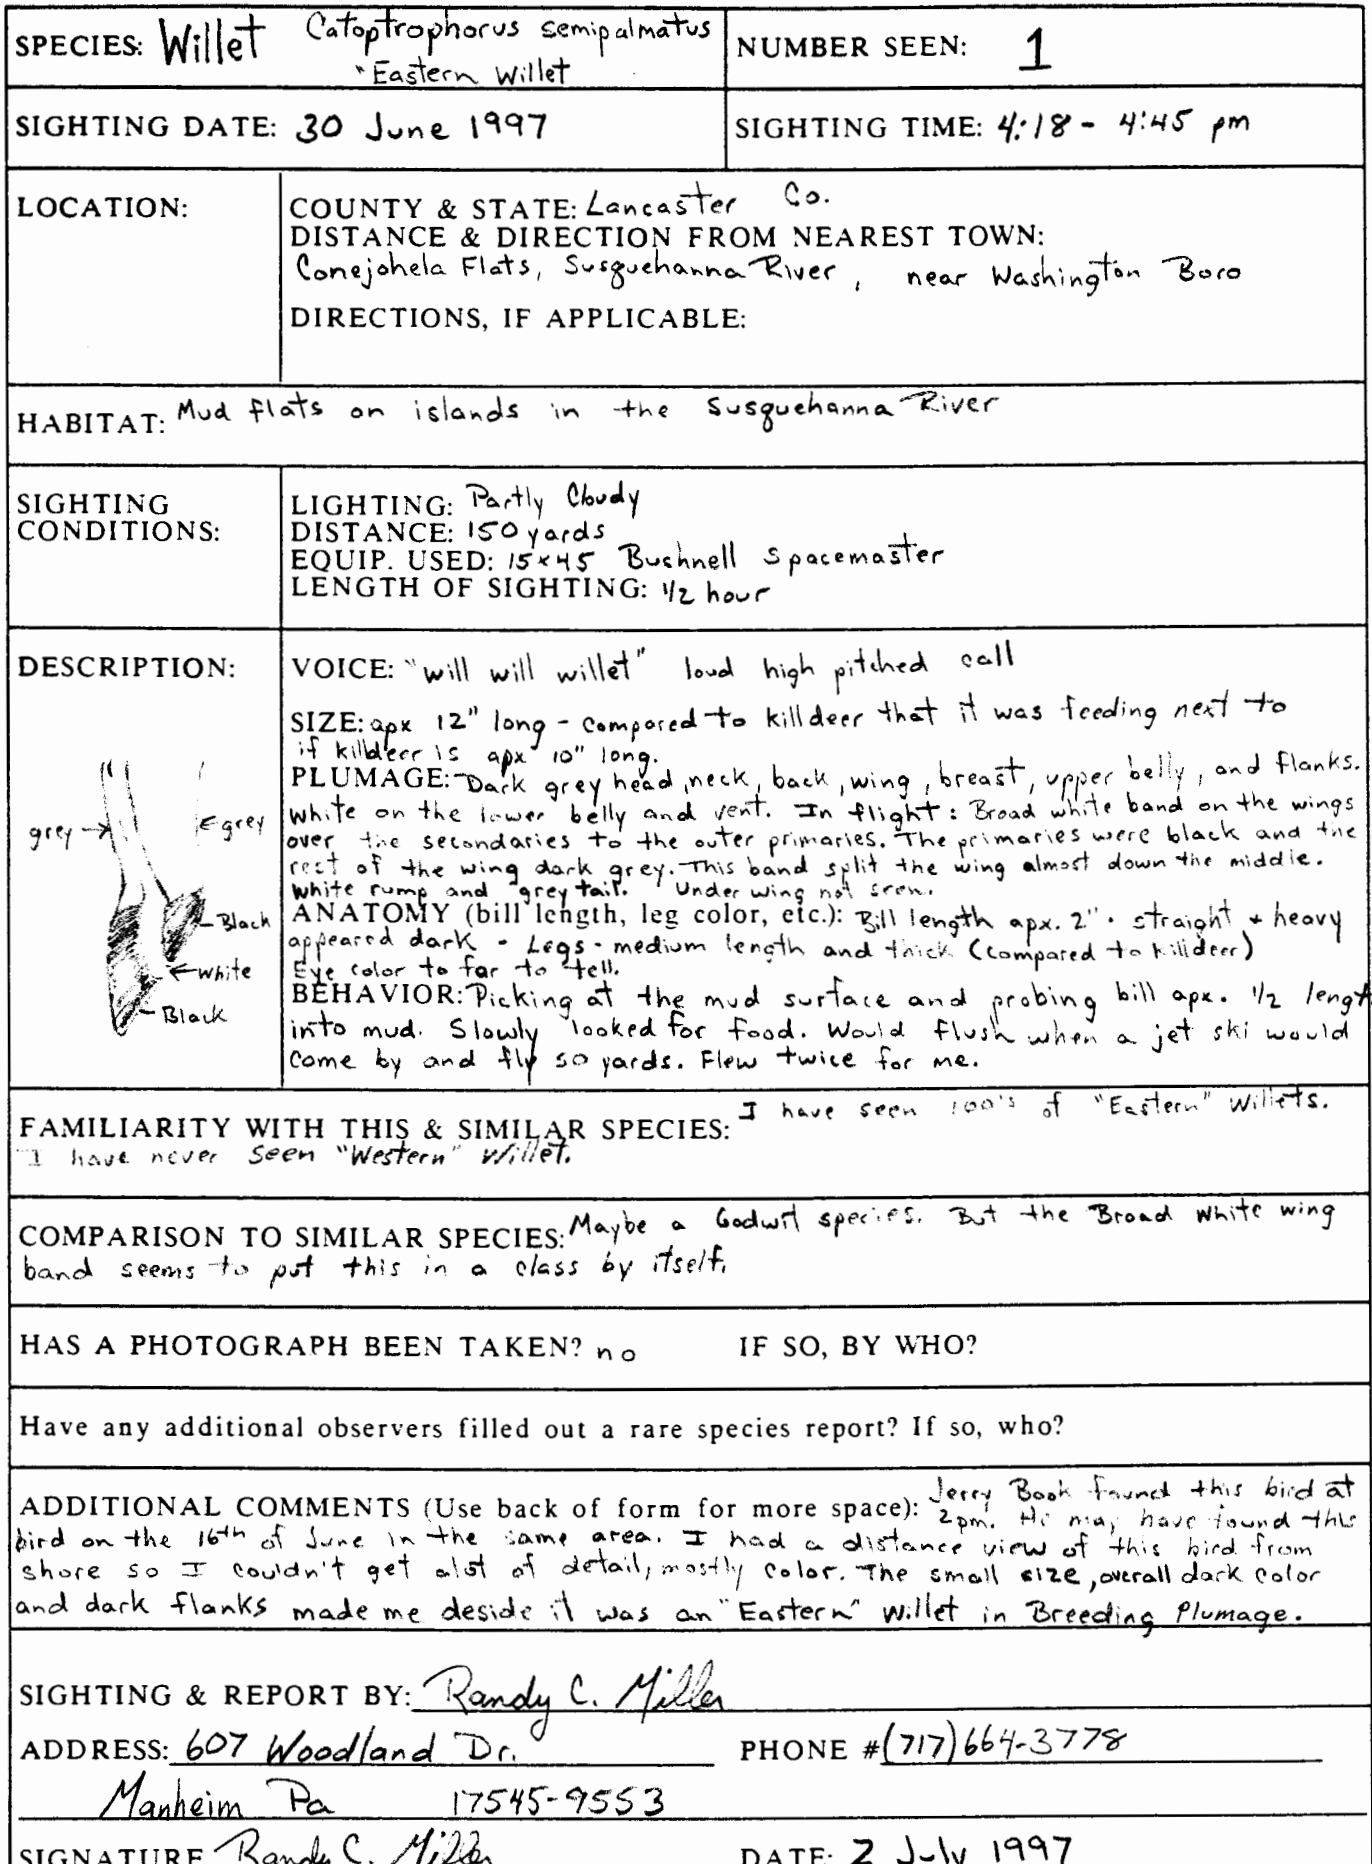 SPECIES: Willet Catoptrophorus semipalmatus
"Eastern Willet
NUMBER SEEN: 1
SIGHTING DATE: 30 June 1997
SIGHTING TIME: 4:18 - 4:45 pm
LOCATION:
COUNTY & STATE: Lancaster Co.
DISTANCE & DIRECTION FROM NEAREST TOWN:
Conejohela Flats, Susquehanna River, near Washington Boro
DIRECTIONS, IF APPLICABLE:
HABITAT: Mud flats on islands in the Susquehanna River
SIGHTING
CONDITIONS:
LIGHTING: Partly Cloudy
DISTANCE: 150 yards
EQUIP. USED: 15x45 Bushnell Spacemaster
LENGTH OF SIGHTING: 1/2 hour
DESCRIPTION:
VOICE: "will will willet" loud high pitched call
SIZE: apx 12" long - compared to killdeer that it was feeding next to
if killdeer is apx 10" long.
PLUMAGE: Dark grey head, neck, back, wing, breast, upper belly, and flanks.
white on the lower belly and vent. In flight: Broad white band on the wings
over the secondaries to the outer primaries. The primaries were black and the
rest of the wing dark grey. This band split the wing almost down the middle.
White rump and grey tail. Under wing not seen.
ANATOMY (bill length, leg color, etc.): Bill length apx. 2" - straight + heavy
appeared dark - Legs - medium length and thick (compared to killdeer)
Eye color to far to tell.
BEHAVIOR: Picking at the mud surface and probing bill apx. 1/2 lengt
into mud. Slowly looked for food. Would flush when a jet ski would
come by and fly 50 yards. Flew twice for me.
grey
grey
Black
white
Black
FAMILIARITY WITH THIS & SIMILAR SPECIES: I have seen 100's of "Eastern" Willets.
I have never seen "Western" Willet.
COMPARISON TO SIMILAR SPECIES: Maybe a Godwit species. But the Broad white wing
band seems to put this in a class by itself.
HAS A PHOTOGRAPH BEEN TAKEN? no IF SO, BY WHO?
Have any additional observers filled out a rare species report? If so, who?
ADDITIONAL COMMENTS (Use back of form for more space): Jerry Book found this bird at
2pm. He may have found this
bird on the 16th of June in the same area. I had a distance view of this bird from
shore so I couldn't get alot of detail, mostly color. The small size, overall dark color
and dark flanks made me deside it was an "Eastern" Willet in Breeding Plumage.
SIGHTING & REPORT BY: Randy C. Miller
ADDRESS: 607 Woodland Dr.
PHONE #(717)664-3778
Manheim Pa 17545-9553
SIGNATURE Randy C. Miller
DATE: 2 July 1997